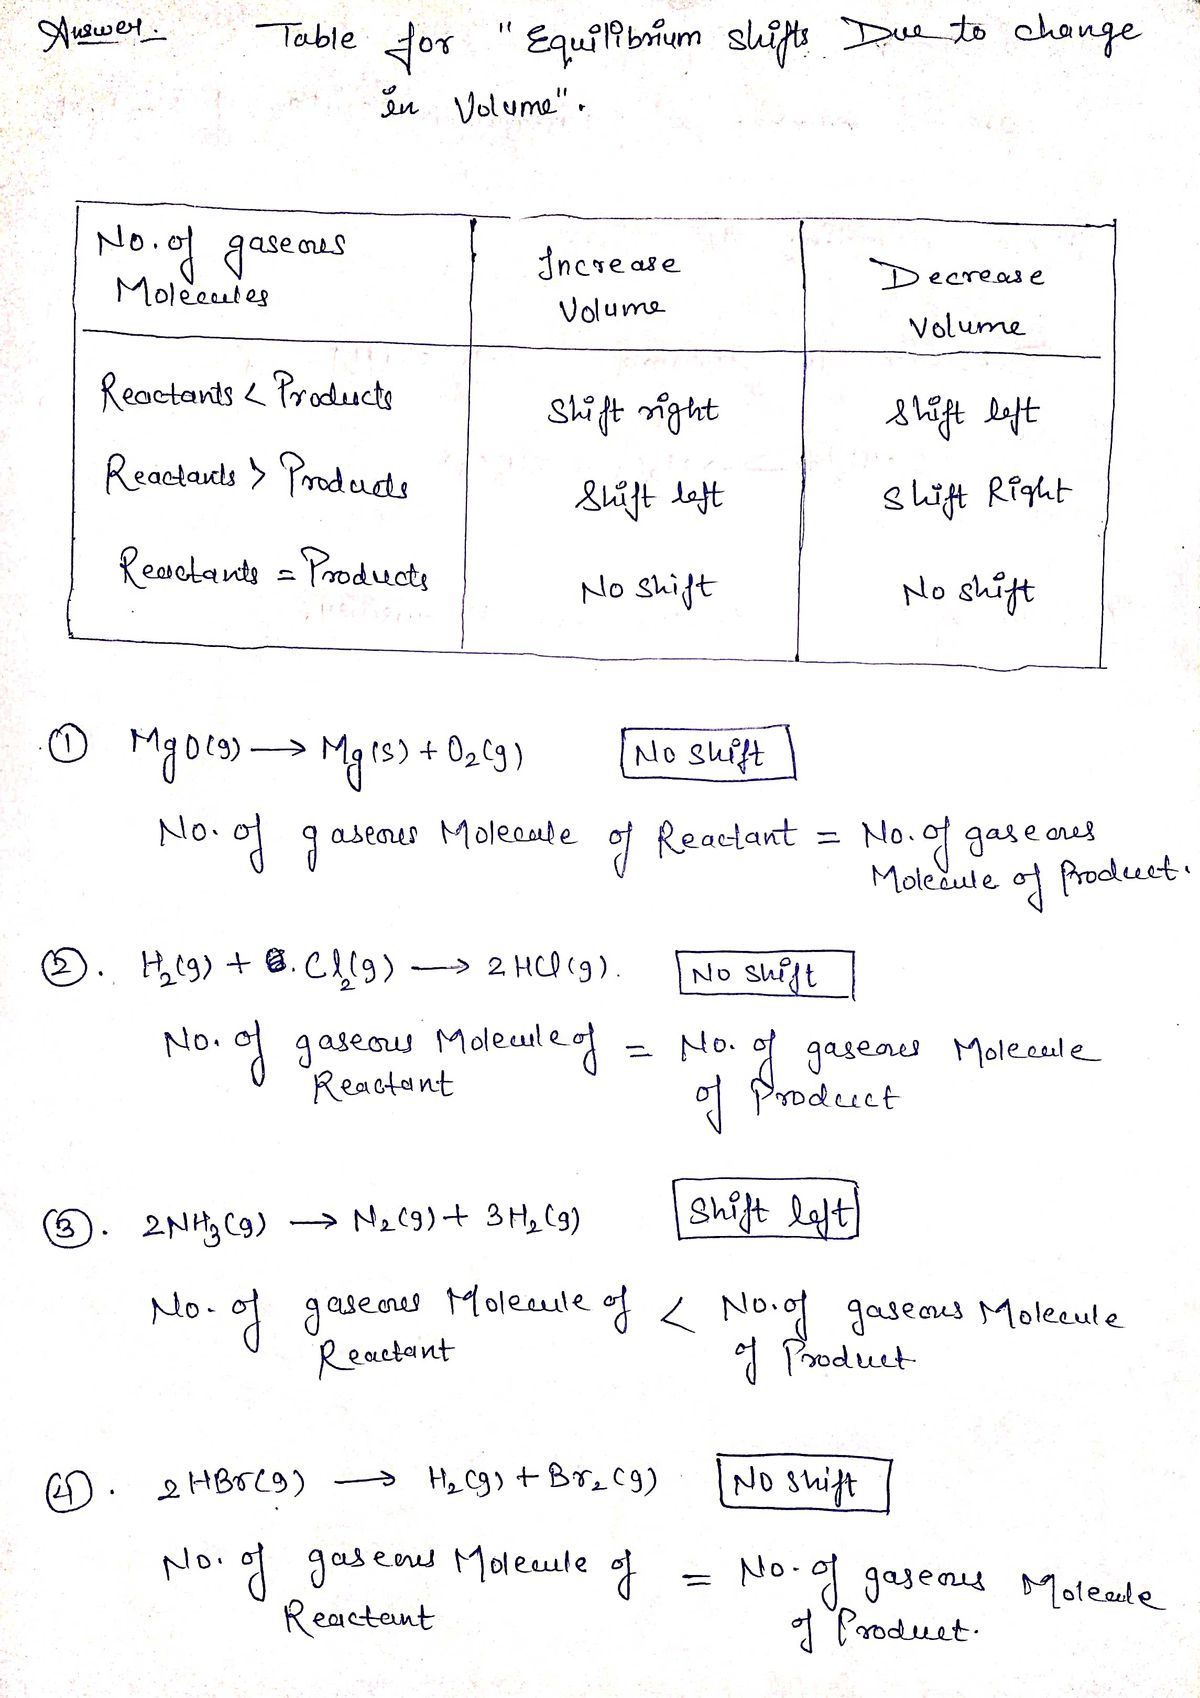 Answer.
Table for "Equilibrium shifts Due to change
in Volume".
No. of gaseous
Molecules
Increase
Volume
Decrease
Volume
Reactants < Products
Shift right
Shift left
Reactants > Products
Shift left
Shift Right
Reactants = Products
No shift
No shift
① MgO(g) → Mg(s) + O₂(g) No shift
No. of gaseous Molecule of Reactant = No. of gaseous
Molecule of Product.
②. H₂(g) + Cl₂(g) → 2HCl(g). No shift
No. of gaseous Molecule of = No. of gaseous Molecule
Reactant of Product
③. 2NH₃(g) → N₂(g) + 3H₂(g) Shift left
No. of gaseous Molecule of < No. of gaseous Molecule
Reactant of Product
④. 2HBr(g) → H₂(g) + Br₂(g) No shift
No. of gaseous Molecule of = No. of gaseous Molecule
Reactant of Product.